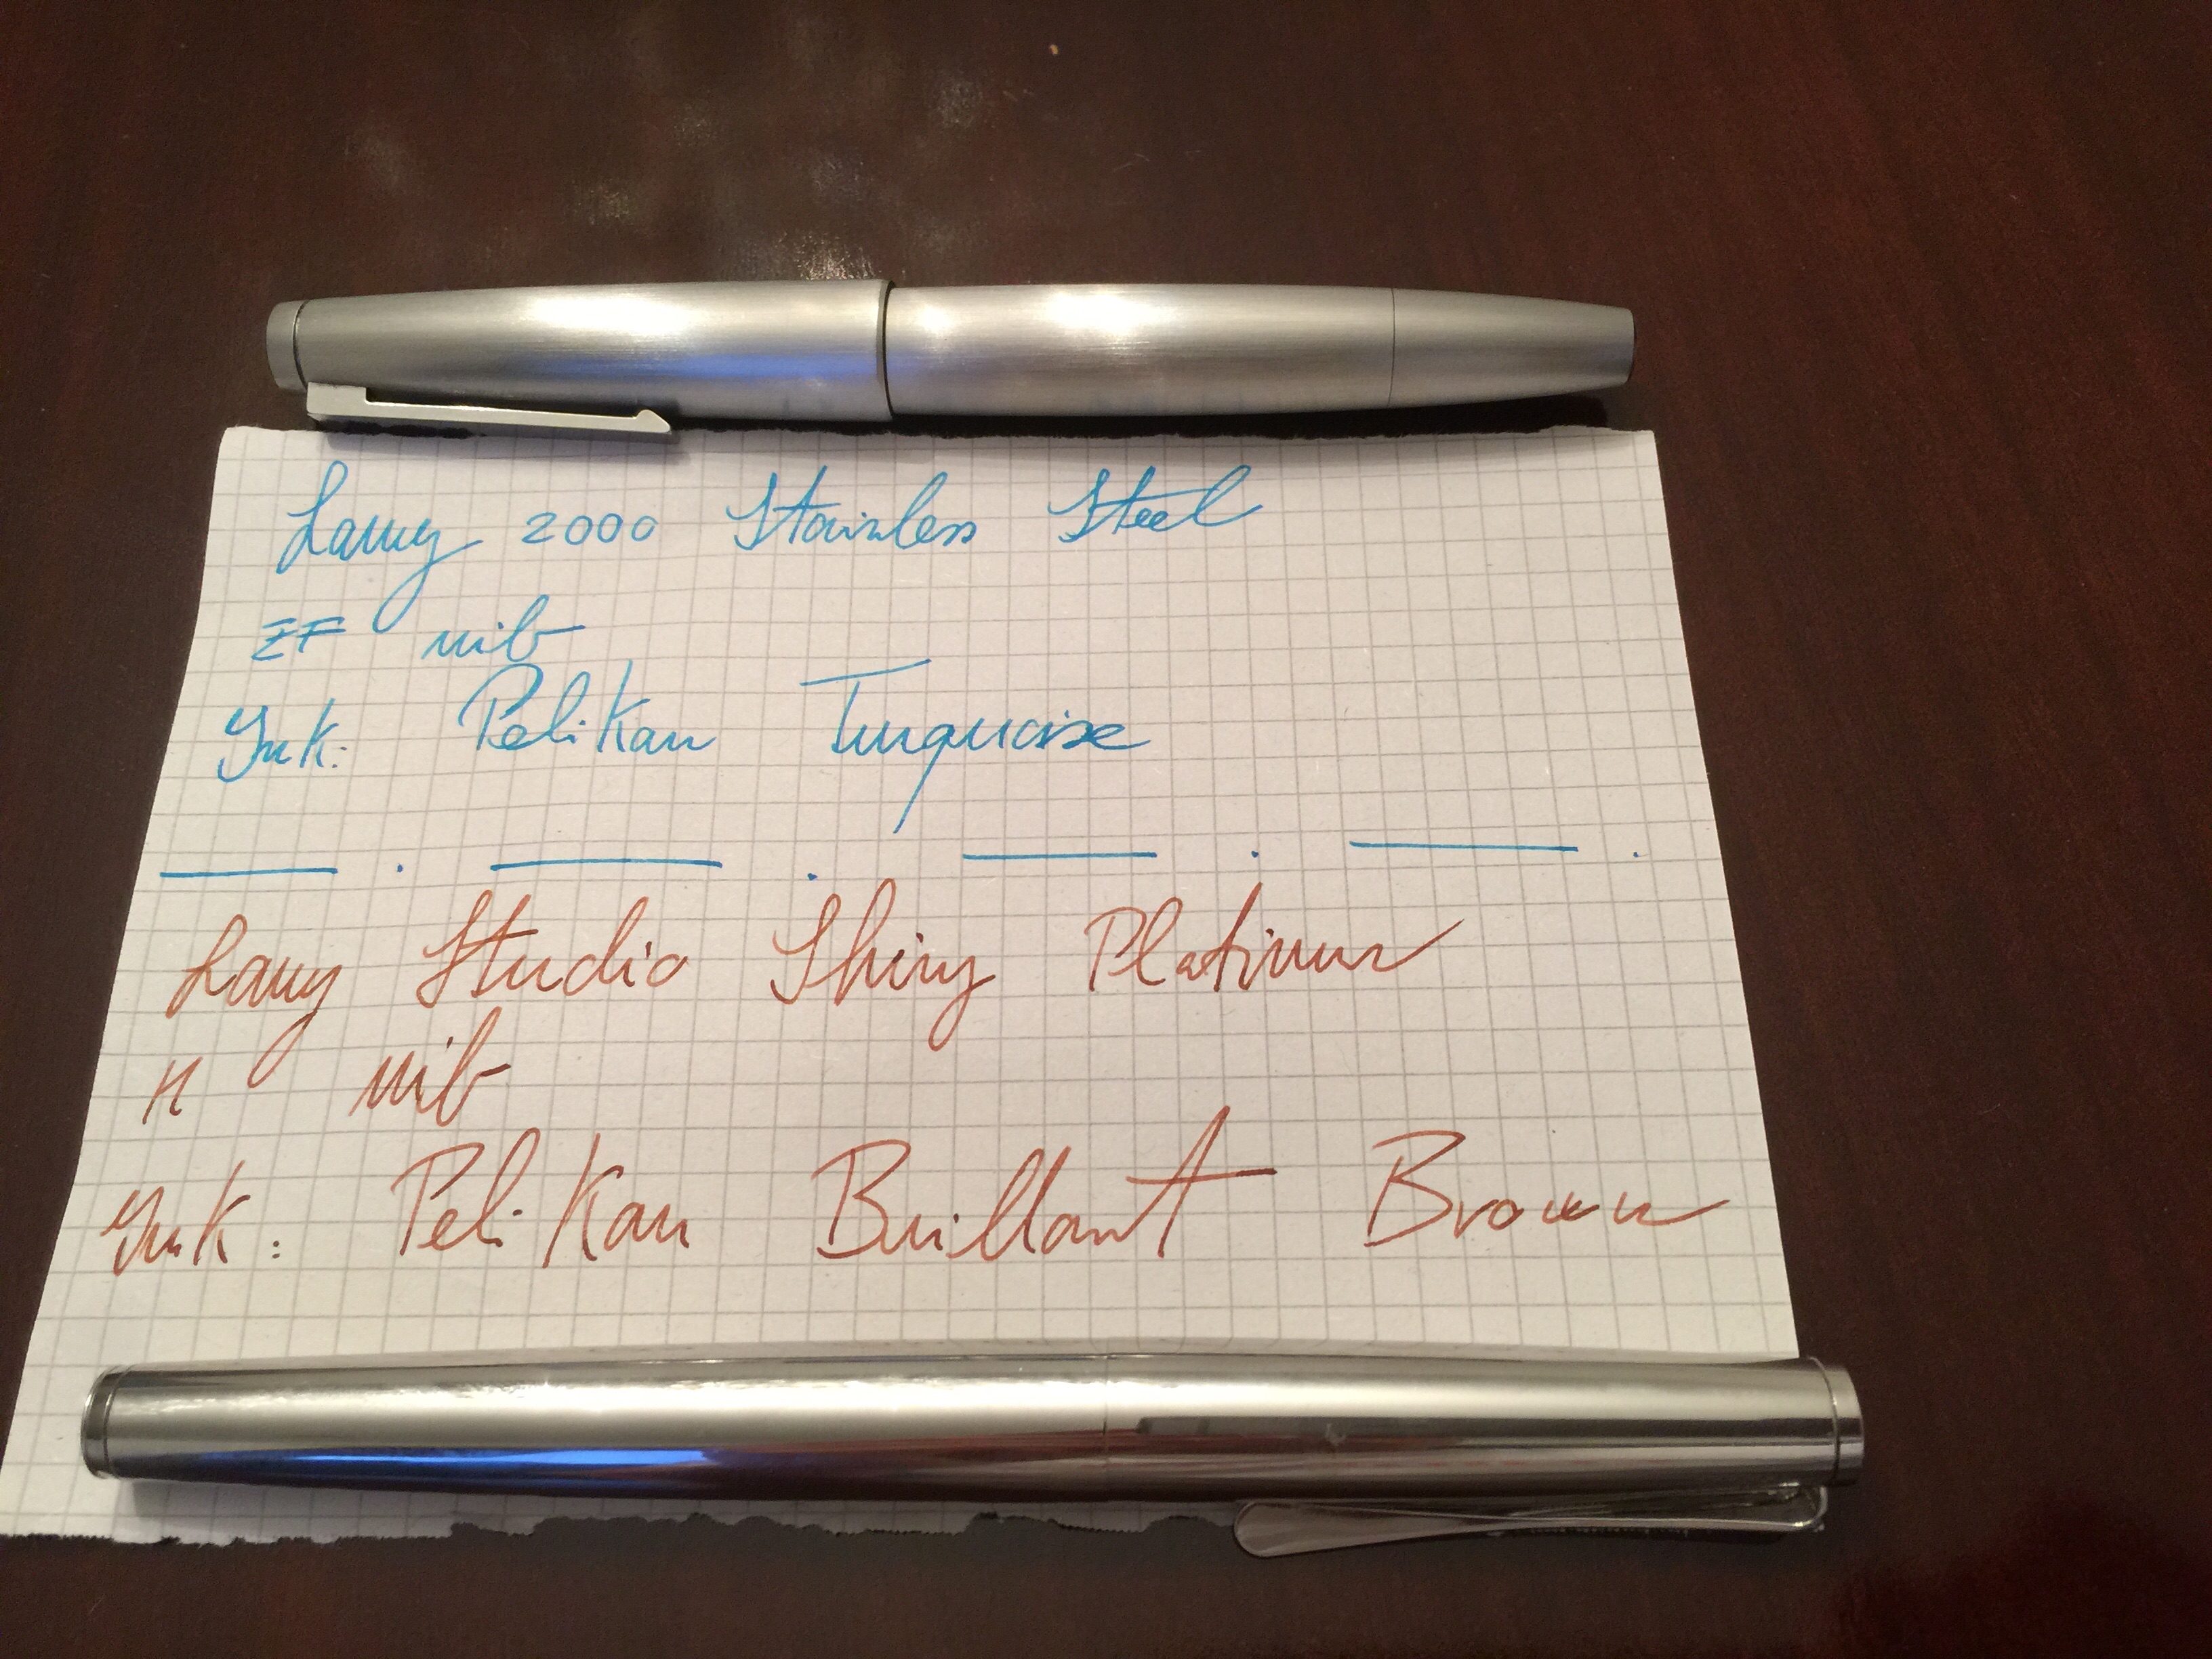 Lamy 2000 Stainless Steel
EF nib
Ink: Pelikan Turquoise
Lamy Studio Shiny Platinum
M nib
Ink: Pelikan Brillant Brown